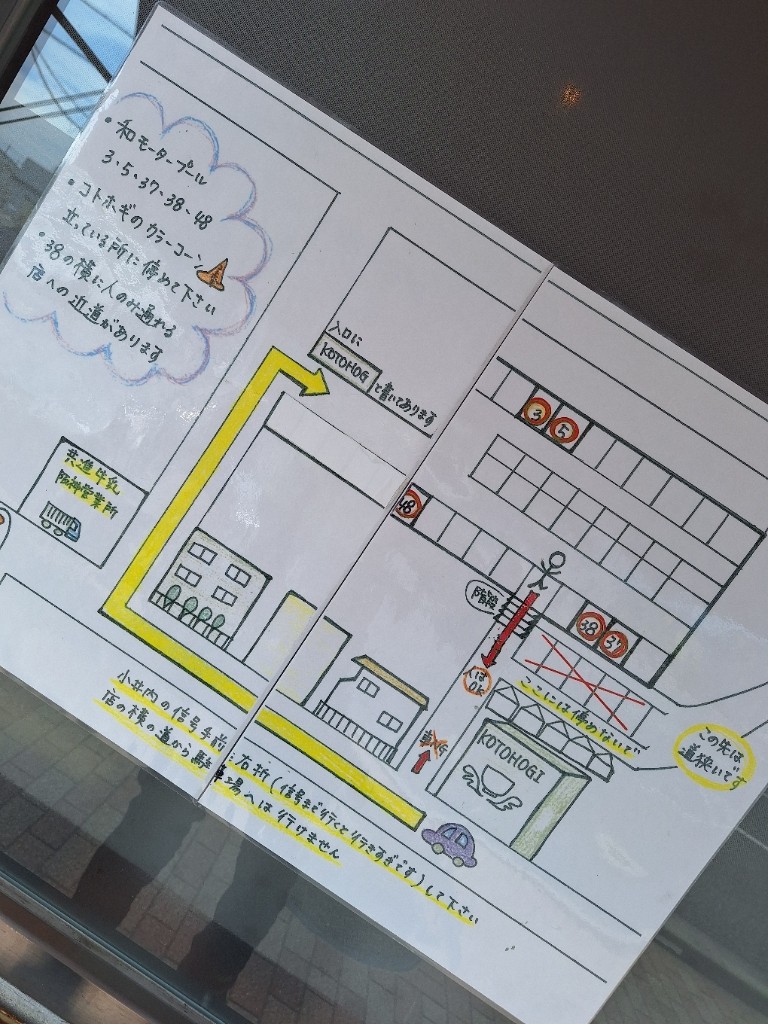 ・和モータープール
3、5、37、38、48
・コトホギのカラーコーン
立っている所に停めて下さい
・38の横に人のみ通れる
店への近道があります
入口に
KOTOHOGI
と書いてあります
共進牛乳
阪神営業所
3
5
48
階段
38
37
人は
OK
ここには停めないで
車
KOTOHOGI
この先は
道狭いです
小井内の信号手前を右折(信号まで行くと行きすぎです)して下さい
店の横の道から駐車場へは行けません